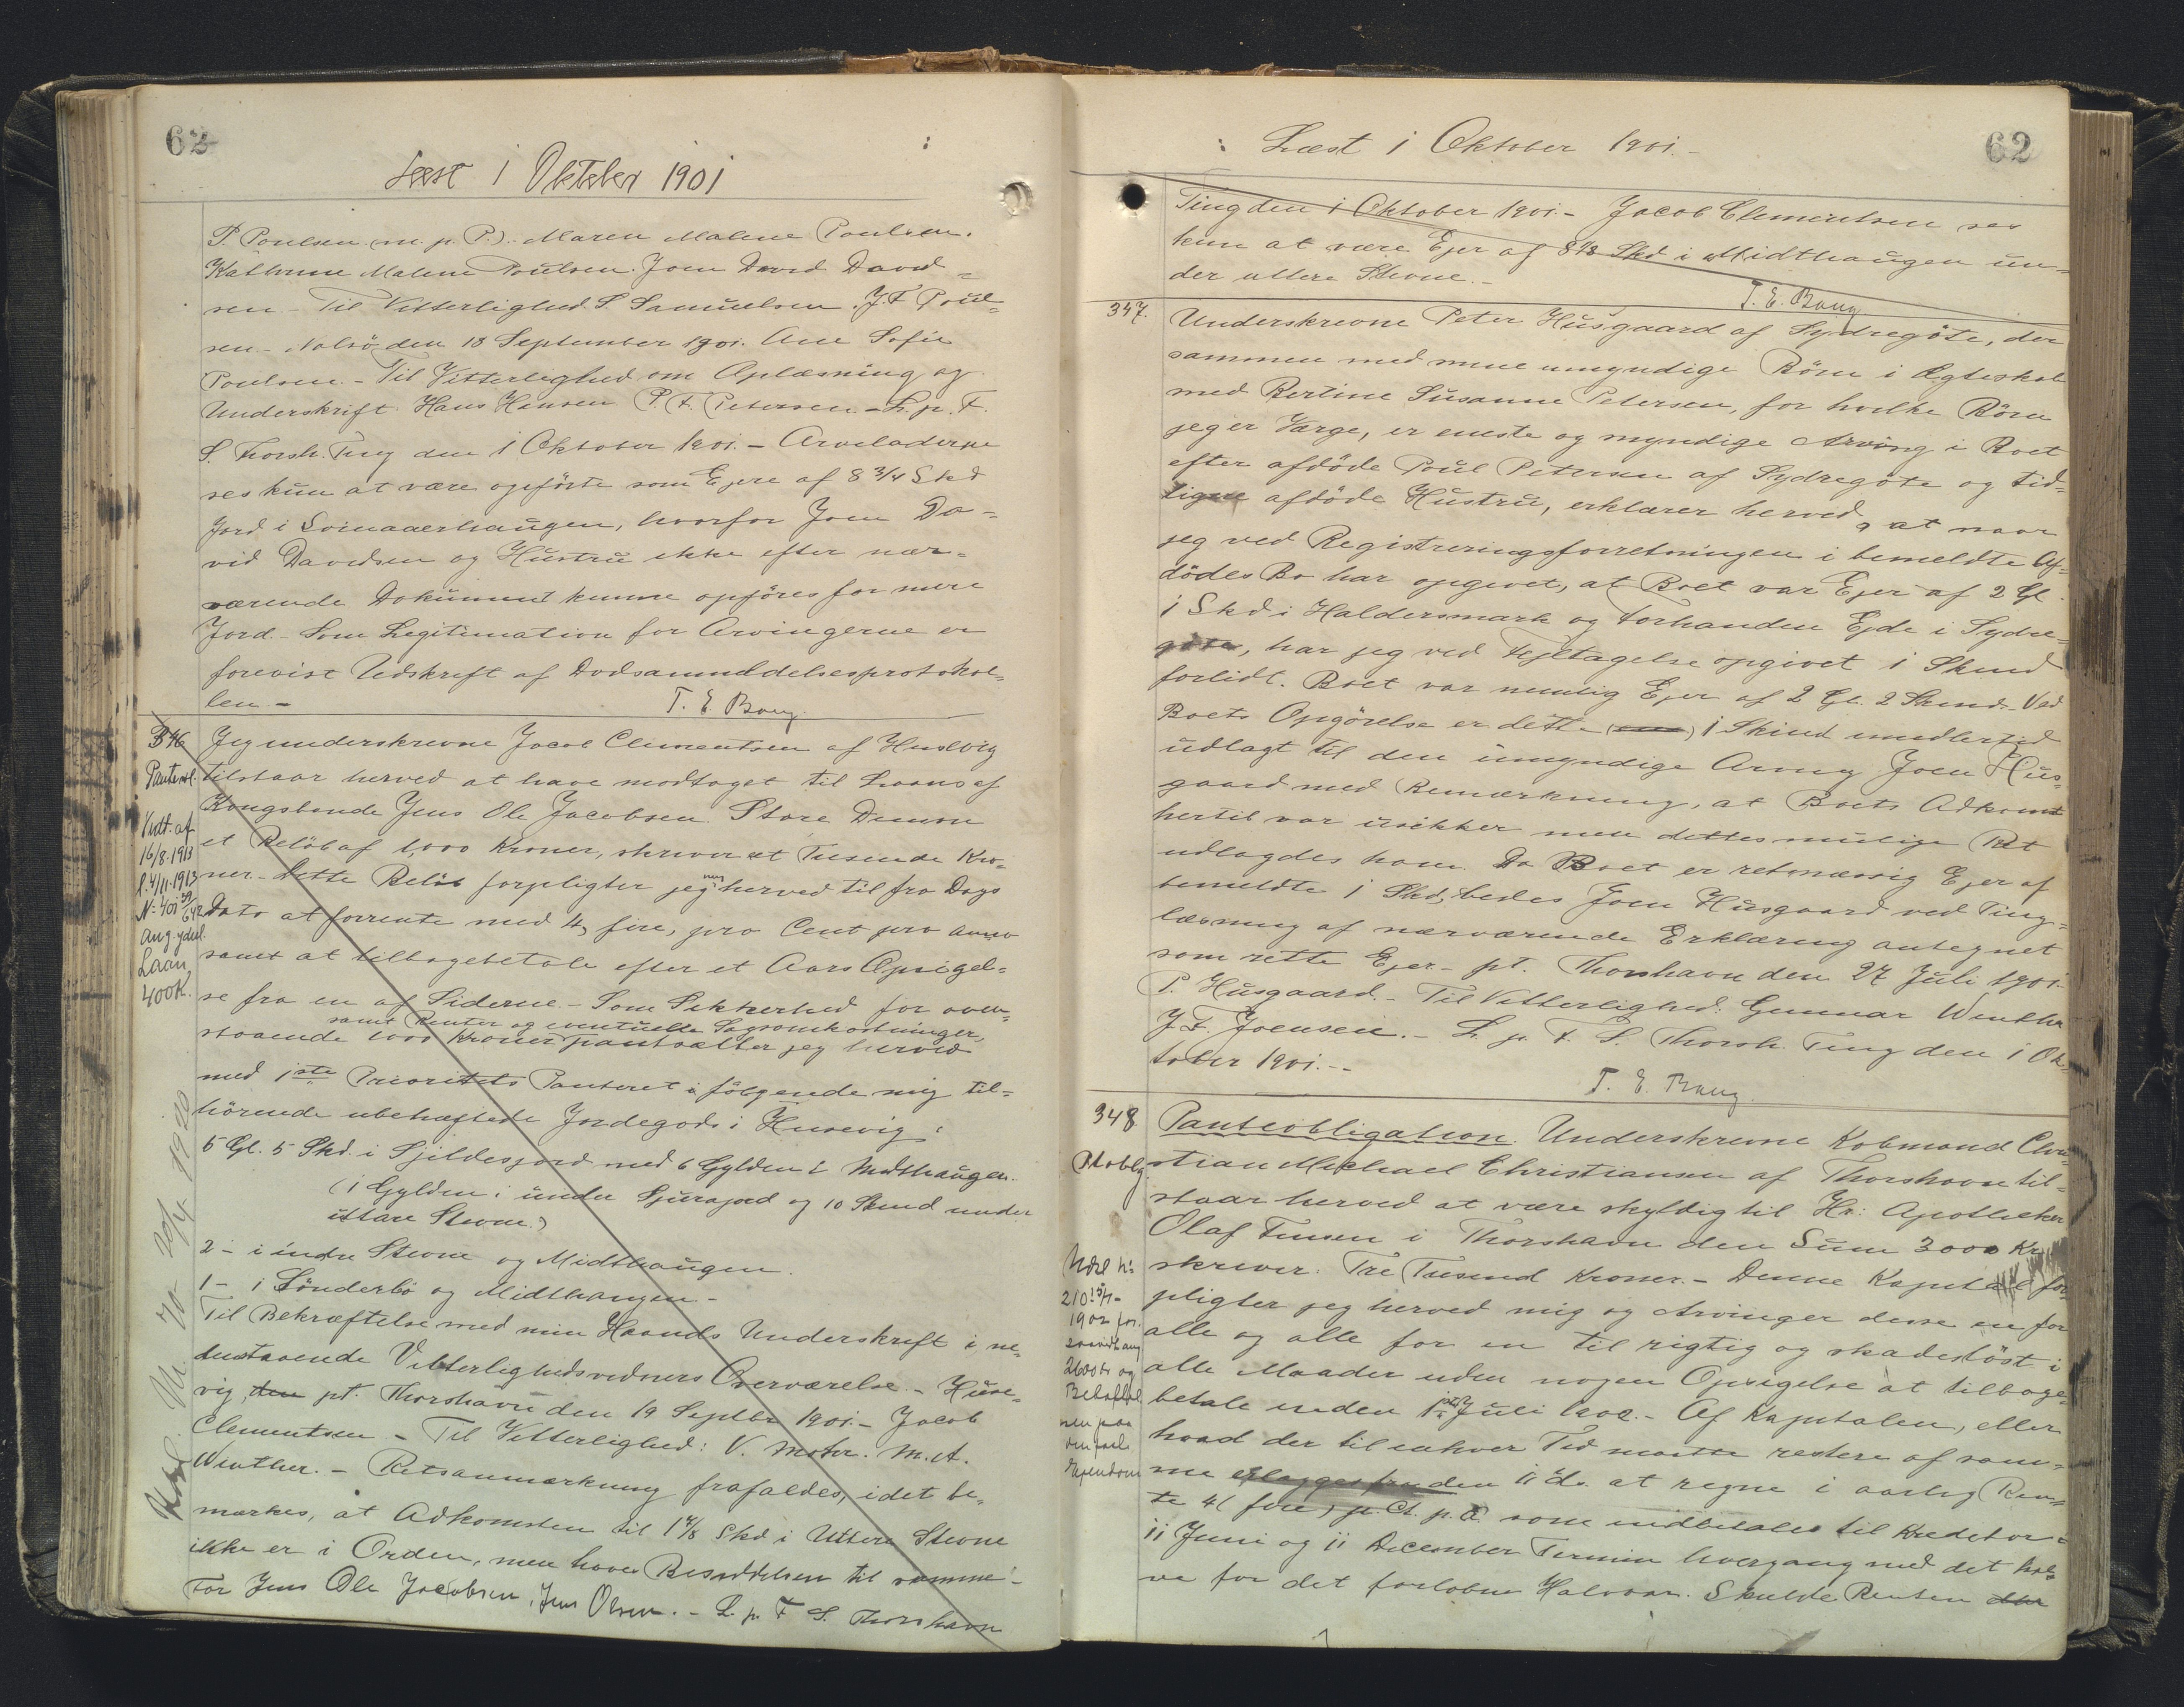 62
Læst 1 Oktober 1901
P. Poulsen (m. p. P.). Maren Malene Poulsen.
Kathrine Malene Poulsen. Joen David David=
sen - Til Vitterlighed. S. Samuelsen. J. F. Poul=
sen. - Nolsö den 18 September 1901. Ane Sofie
Poulsen. - Til Vitterlighed om Oplæsning og
Underskrift. Hans Hansen P. F. Petersen. - L. p. F.
S. Thorsh. Ting den 1 Oktober 1901. - Arveladerne
ses kun at være opförte som Ejere af 8 3/4 Skd
Jord i, hvorfor Joen Da=
vid Davidsen og Hustru ikke efter nær=
værende Dokument kunne opföres for mere
Jord. - Som Legitimation for Arvingerne er
forevist Udskrift af Dödsanmeldelsesprotokol=
len. -
T. E. Bang.
346
Panteobl.
Jeg underskrevne Jacob Clementsen af Husevig
tilstaar herved at have modtaget til Laans af
Kongsbonde Jens Ole Jacobsen Store Dimon
et Belöb af 1,000 Kroner, skriver et Tusende Kro=
ner. - Dette Belöb forpligter jeg mig herved til fra Dags
Dato at forrente med 4, fire, pro Cent pro anno
samt at tilbagebetale efter et Aars Opsigel=
se fra en af Siderne. - Som Sikkerhed for oven=
samt Renter og eventuelle Sagsomkostninger,
staaende 1000 Kroner pantsætter jeg herved
med 1ste Prioritets Panteret i fölgende mig til=
hörende ubehæftede Jordegods i Husevig:
5 Gl. 5 Skd. i Sjildesjord med 6 Gylden i Midthaugen.
(1 Gylden i under Sjurajord og 10 Skind under
uttare Stevne.)
2 - i indre Stevne og Midthaugen.
1 - i Sönderbö og Midthaugen -
Til Bekræftelse med min Haands Underskrift i ne=
denstaaende Vitterlighedsvidners Overværelse. - Huse=
vig, den pt. Thorshavn den 19 Septbr 1901. - Jacob
Clementsen - Til Vitterlighed: V. Mohr. M. A.
Winther. - Retsanmærkning frafaldes, idet be=
mærkes, at Adkomsten til 1 4/8 Skd i Uttere Stevne
ikke er i Orden, men haves Besiddelsen til samme. -
For Jens Ole Jacobsen, Jens Olsen. - L. p. F. S. Thorshavn
Vidt. af
16/8.1913
l. 4/11.1913
Ang. ydel.
Laan
400 K.
62
Læst 1 Oktober 1901. -
Ting den 1 Oktober 1901. - Jacob Clementsen ses
kun at være Ejer af 8 7/8 Skd i Midthaugen un=
der uttere Stevne. -
T. E. Bang
347.
Underskrevne Peter Husgaard af Sydregöte, der
sammen med mine umyndige Börn i Ægteskab
med Bertine Susanne Petersen, for hvilke Börn
jeg er Værge, er eneste og myndige Arving i Boet
efter afdöde Poul Petersen af Sydregöte og tid=
ligere afdöde Hustru, erklærer herved, at naar
jeg ved Registreringsforretningen i bemeldte Af=
dödes Bo har opgivet, at Boet var Ejer af 2 Gl
1 Skd i Haldersmark og Torhanden Ejde i Sydre=
göte, har jeg ved Fejltagelse opgivet 1 Skind
forlidt. Boet var nemlig Ejer af 2 Gl. 2 Skind. - Ved
Boets Opgörelse er dette 1 Skind imidlertid
udlagt til den umyndige Arving Joen Hus=
gaard med Bemærkning, at Boets Adkomst
hertil var usikker men dettes mulige Ret
udlagdes ham. Da Boet er retmæssig Ejer af
bemeldte 1 Skd, bedes Joen Husgaard ved Ting=
læsning af nærværende Erklæring antegnet
som rette Ejer. - pt. Thorshavn den 27 Juli 1901.
P. Husgaard. - Til Vitterlighed: Gunnar Winther
J. F. Joensen. - L. p. F. S. Thorsh. Ting den 1 Ok=
tober 1901. - -
T. E. Bang.
348
Ptoblg.
Panteobligation. Underskrevne Kobmand Chri=
stian Michael Christiansen af Thorshavn til=
staar herved at være skyldig til Hr: Apotheker
Olaf Finsen i Thorshavn den Sum 3000 Kr
skriver. Tre Tusend Kroner. - Denne Kapital for=
pligter jeg herved mig og Arvinger desse en for
alle og alle for en til rigtig og skadeslöst i
alle Maader uden nogen Opsigelse at tilbage=
betale inden 1ste Juli 1902. - Af Kapitalen, eller
hvad der til enhver Tid maatte restere af sam=
me erlægges fra den 11 ds. at regne i aarlig Ren=
te 4 ( fire ) p. Ct. p. a. som indbetales til Kreditor
11 Juni og 11 December Termin hvergang med det hal=
ve for det forlobne Halvaar. Skulde Renten